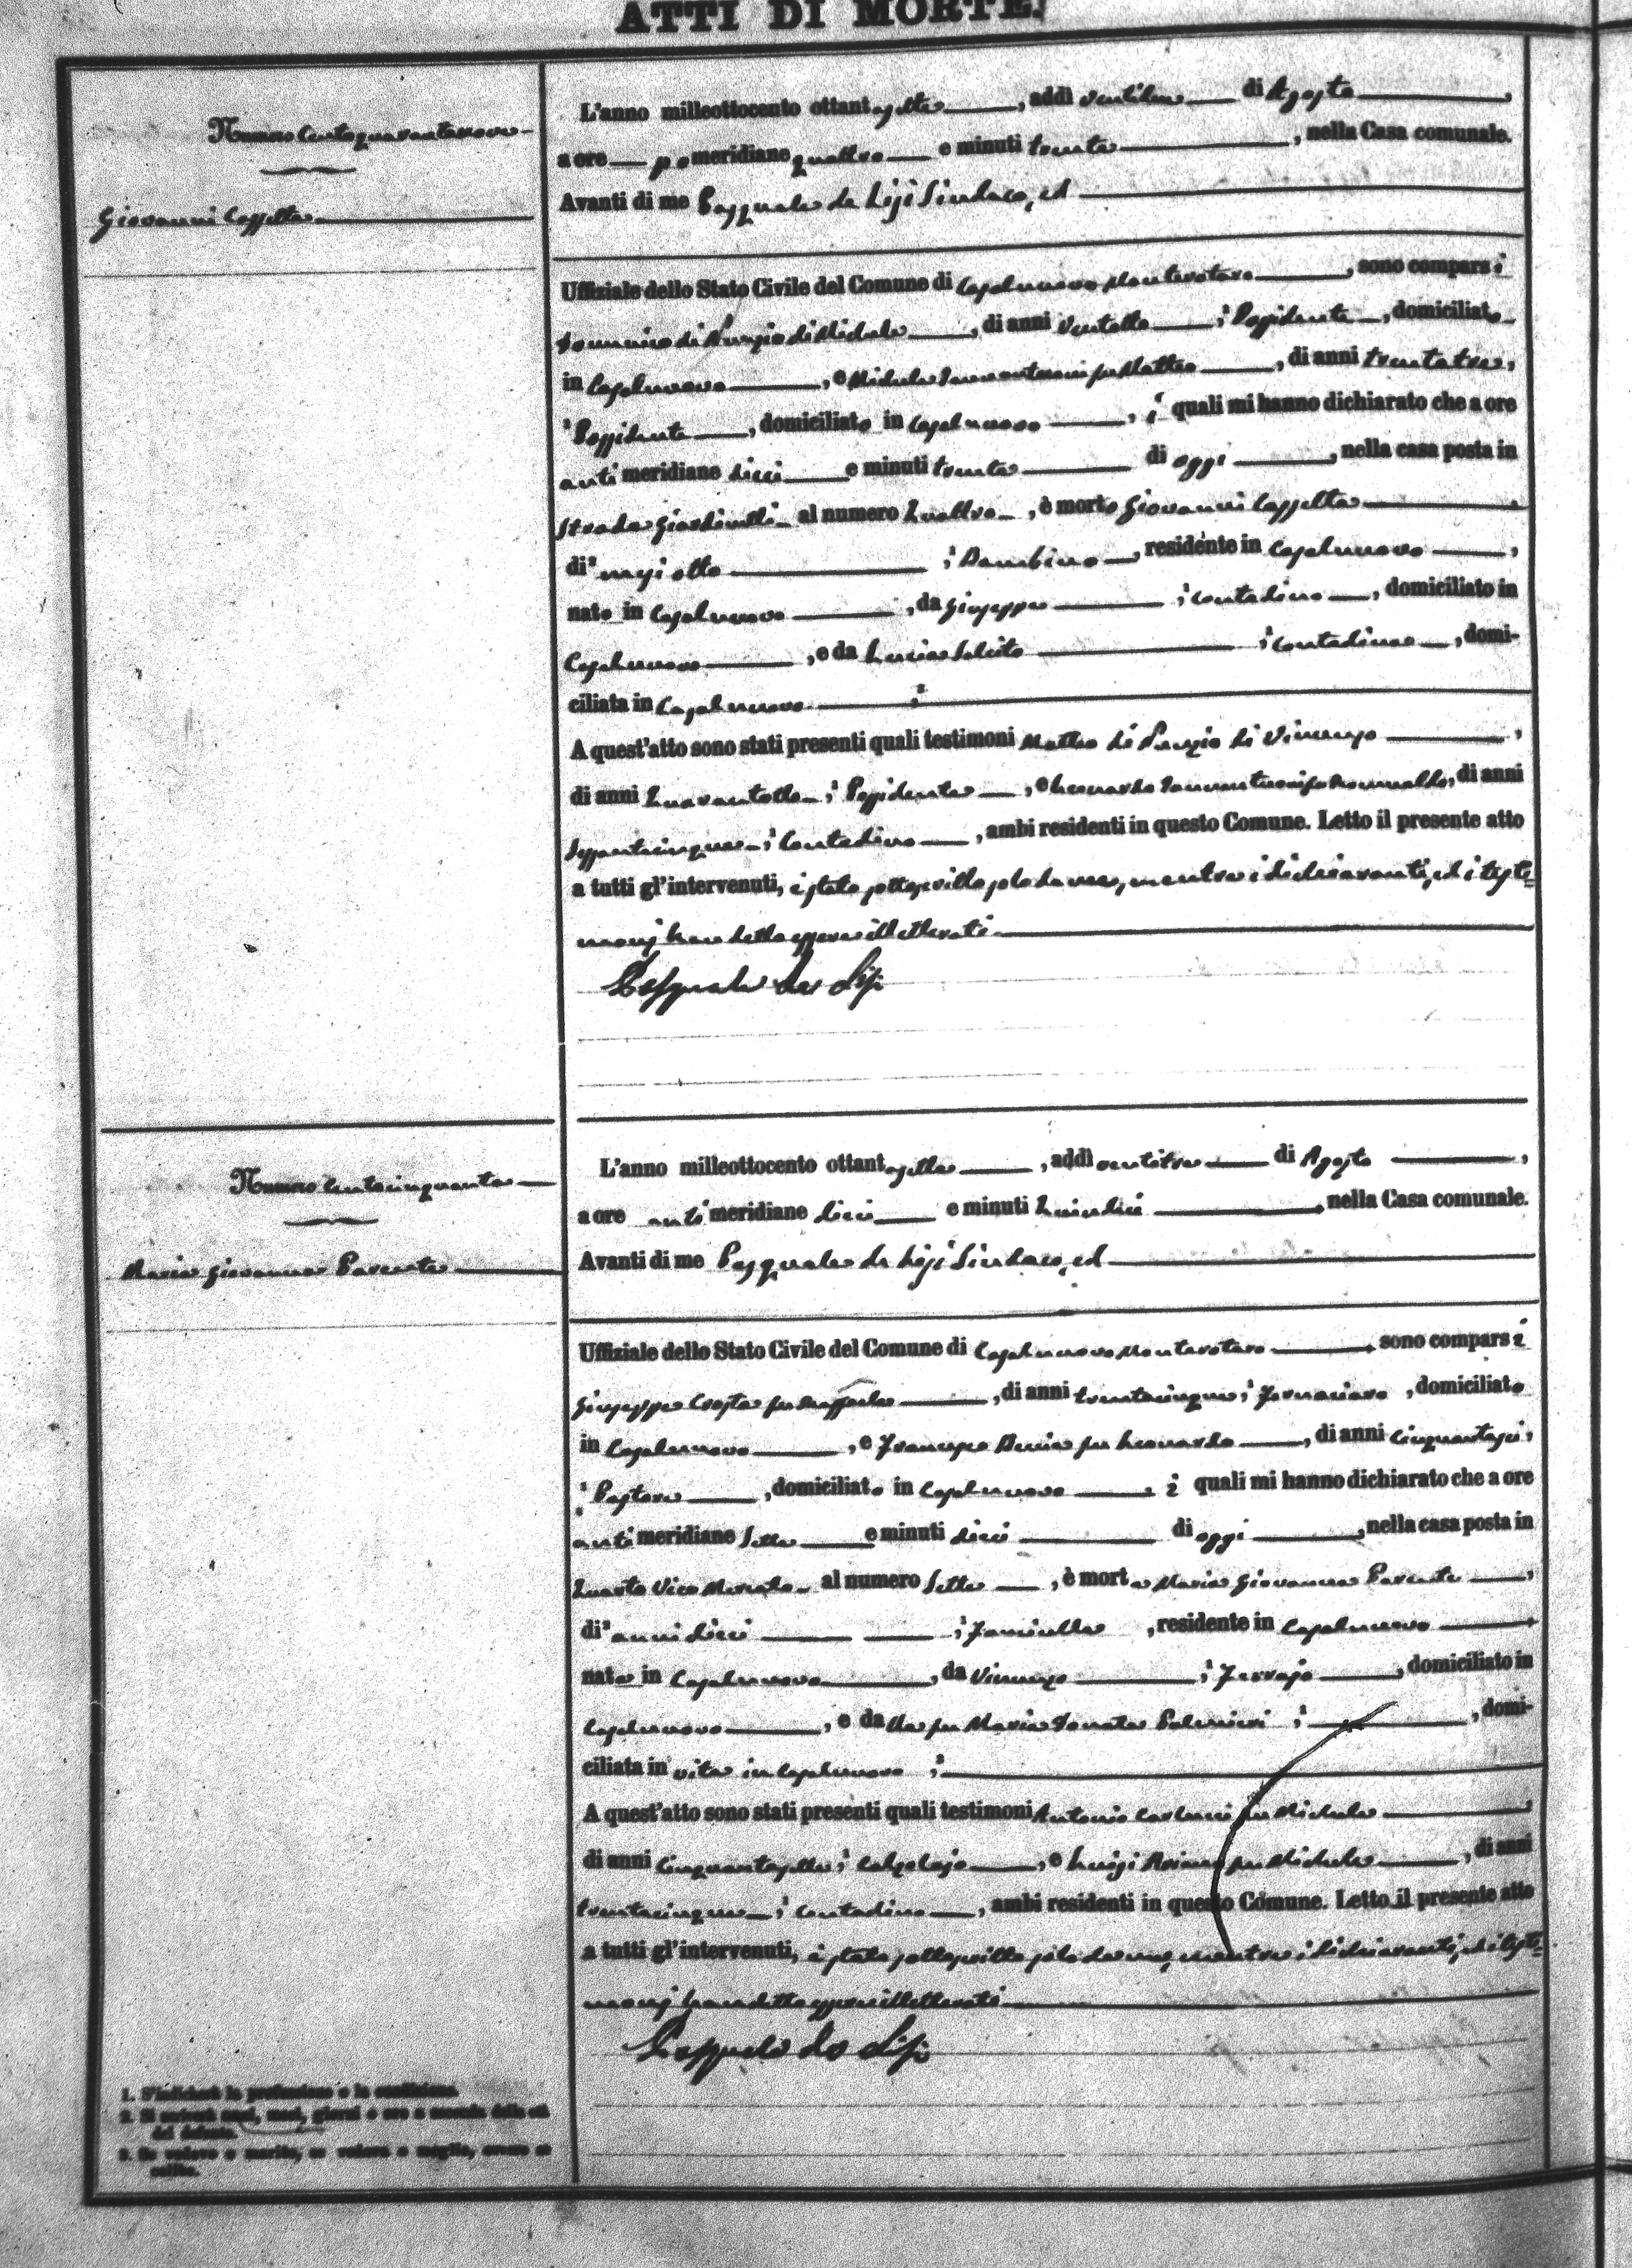 ATTI DI MORTE.
Numero Centoquarantanove
Giovanni Cassetta
L'anno milleottocento ottantasette, addì ventidue di Agosto,
a ore pomeridiane quattro e minuti trenta, nella Casa comunale.
Avanti di me Pasquale de Lisi Sindaco, ed
Uffiziale dello Stato Civile del Comune di Casalnuovo Monterotaro, sono comparsi
Domenico di Nunzio di Michele, di anni ventotto, Possidente, domiciliato
in Casalnuovo, e Michele Iammantuoni fu Matteo, di anni trentatre,
Possidente, domiciliato in Casalnuovo, i quali mi hanno dichiarato che a ore
antimeridiane dieci e minuti trenta di oggi, nella casa posta in
Strada Giardinelli al numero Quattro, è morto Giovanni Cassetta
di mesi otto, Bambino, residente in Casalnuovo,
nato in Casalnuovo, da Giuseppe, contadino, domiciliato in
Casalnuovo, e da Lucia Salcito, contadina, domi-
ciliata in Casalnuovo
A quest'atto sono stati presenti quali testimoni Matteo di Nunzio di Vincenzo,
di anni Quarantotto, Possidente, e Leonardo Iammantuoni fu Romualdo, di anni
Sessantacinque, Contadino, ambi residenti in questo Comune. Letto il presente atto
a tutti gl'intervenuti, è stato sottoscritto solo da me, mentre i dichiaranti, ed i testi=
monj han detto essere illetterati
Pasquale de Lisi
Numero Centocinquanta
Maria Giovanna Parente
L'anno milleottocento ottantasette, addì ventitre di Agosto,
a ore antimeridiane dieci e minuti Quindici, nella Casa comunale.
Avanti di me Pasquale de Lisi Sindaco, ed
Uffiziale dello Stato Civile del Comune di Casalnuovo Monterotaro, sono comparsi
Giuseppe Crosta fu Raffaele, di anni trentacinque, Fornaciaro, domiciliato
in Casalnuovo, e Francesco Beccia fu Leonardo, di anni cinquantasei,
Pastore, domiciliato in Casalnuovo i quali mi hanno dichiarato che a ore
antimeridiane Sette e minuti dieci di oggi, nella casa posta in
Quarto Vico Mercato al numero Sette, è morta Maria Giovanna Parente,
di anni dieci, Fanciulla, residente in Casalnuovo
nata in Casalnuovo, da Vincenzo, Ferrajo, domiciliato in
Casalnuovo, e da fu Maria Donata Palmieri, domi-
ciliata in vita in Casalnuovo
A quest'atto sono stati presenti quali testimoni Antonio Carlucci fu Michele
di anni Cinquantasette, calzolajo, e Luigi fu Michele, di anni
trentacinque, Contadino, ambi residenti in questo Comune. Letto il presente atto
a tutti gl'intervenuti, è stato sottoscritto solo da me, mentre i dichiaranti, ed i testi=
monj han detto essere illetterati
Pasquale de Lisi
1. S'indicherà la professione o la condizione.
2. Si noterà anni, mesi, giorni o ore a seconda della età
del defunto.
3. Se vedovo o marito, se vedova o moglie, ovvero se
celibe.